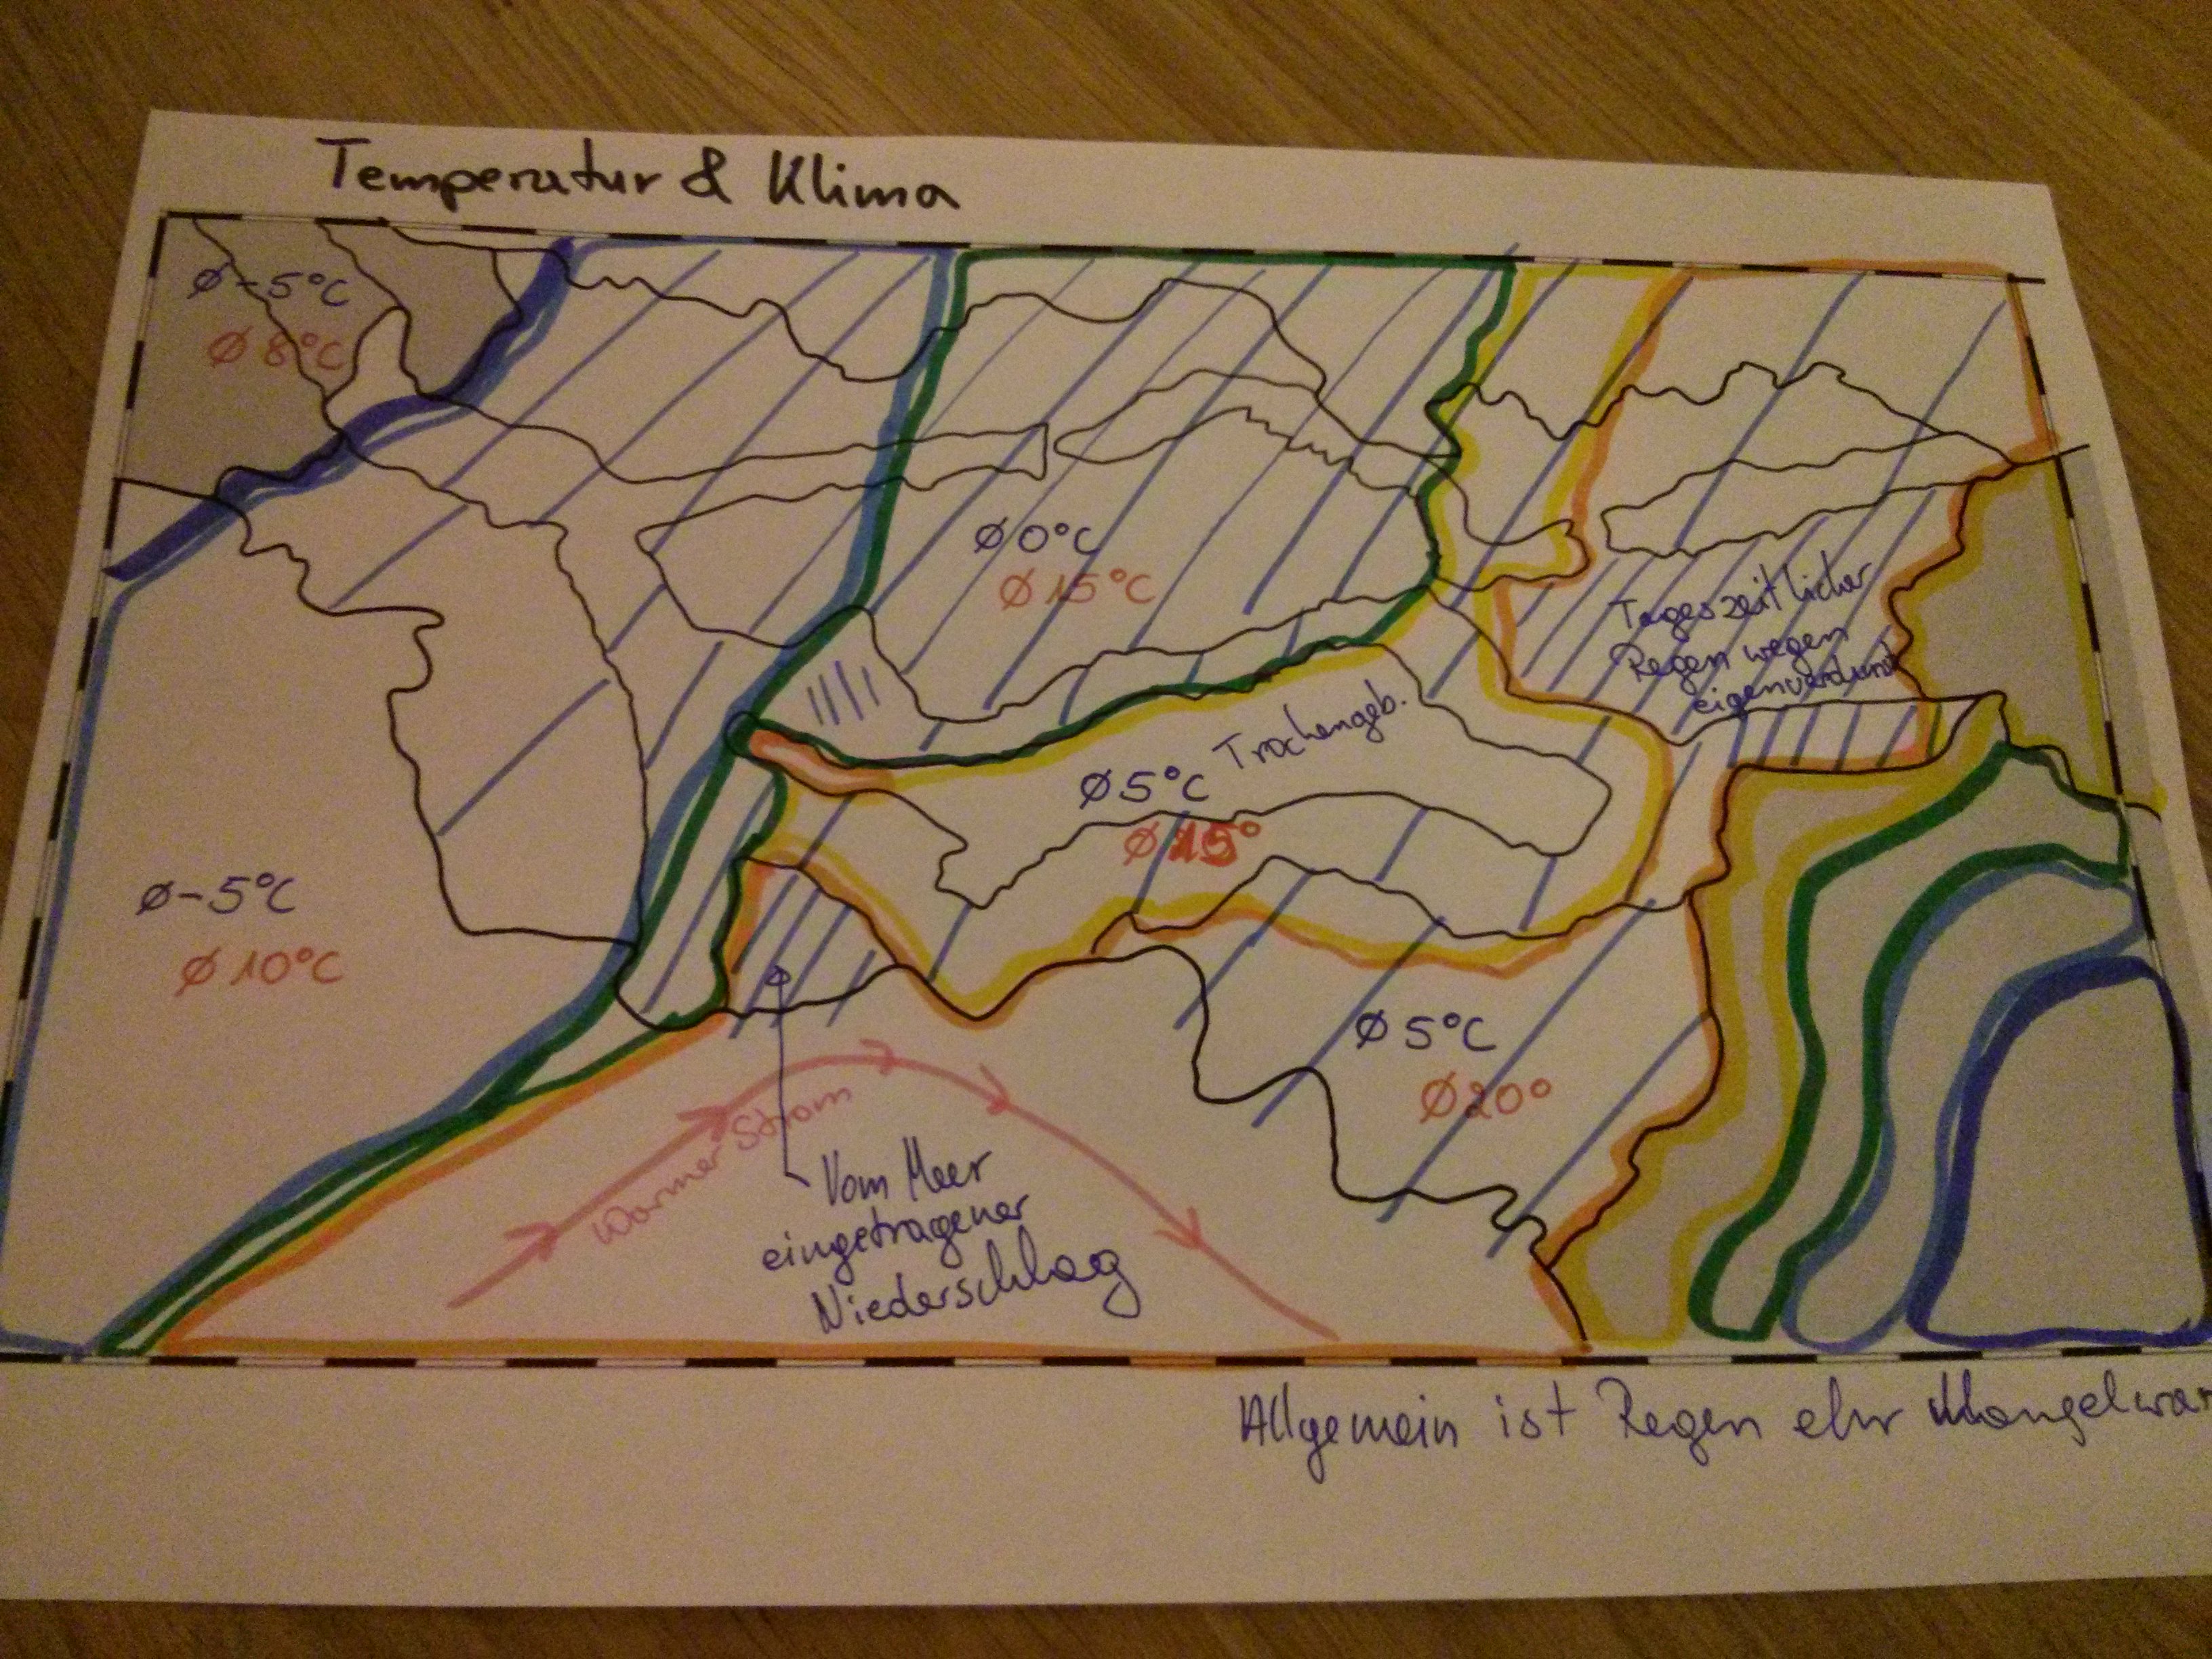 Temperatur & Klima
Ø-5°C
Ø 8°C
Ø 0°C
Ø 15°C
Tageszeitlicher
Regen wegen
eigenverdunst
Trockengeb.
Ø5°C
Ø 15°
Ø-5°C
Ø 10°C
Ø 5°C
Ø20°
Warmer Strom
Vom Meer
eingetragener
Niederschlag
Allgemein ist Regen ehr Mangelwar